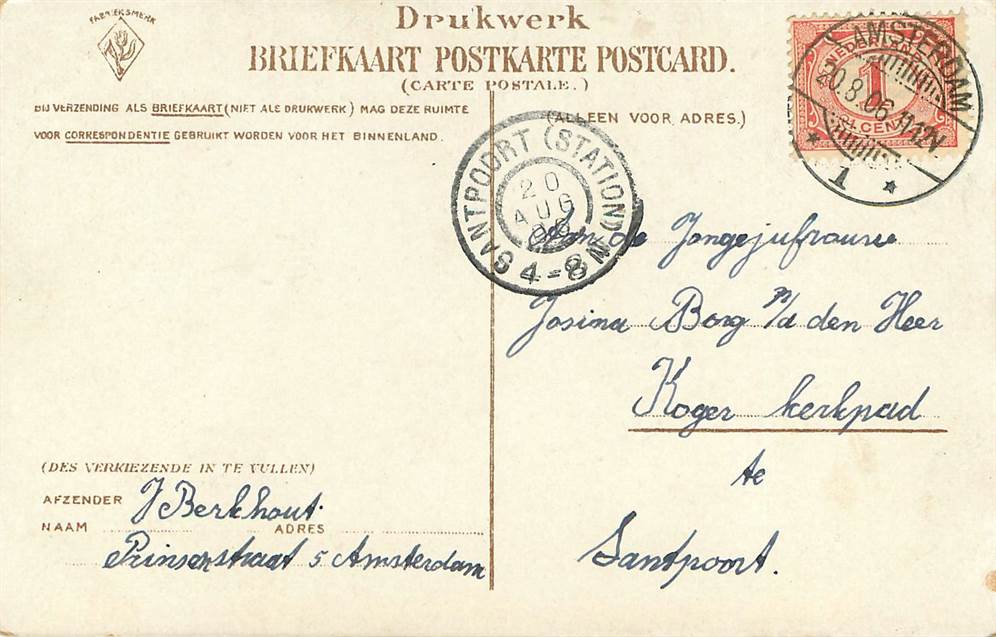 FABRIEKSMERK
Drukwerk
BRIEFKAART POSTKARTE POSTCARD.
(CARTE POSTALE.)
BIJ VERZENDING ALS BRIEFKAART (NIET ALS DRUKWERK) MAG DEZE RUIMTE
VOOR CORRESPONDENTIE GEBRUIKT WORDEN VOOR HET BINNENLAND.
(ALLEEN VOOR ADRES.)
NEDERLAND
1
CENT
AMSTERDAM
20.8.06
1
SANTPOORT (STATION)
20
AUG
06
4-8N
Aan de Jongejufrouw
Josina Borg p/a den Heer
Koger kerkpad
te
Santpoort.
(DES VERKIEZENDE IN TE VULLEN)
AFZENDER J Berkhout.
NAAM ADRES
Prinsenstraat 5 Amsterdam